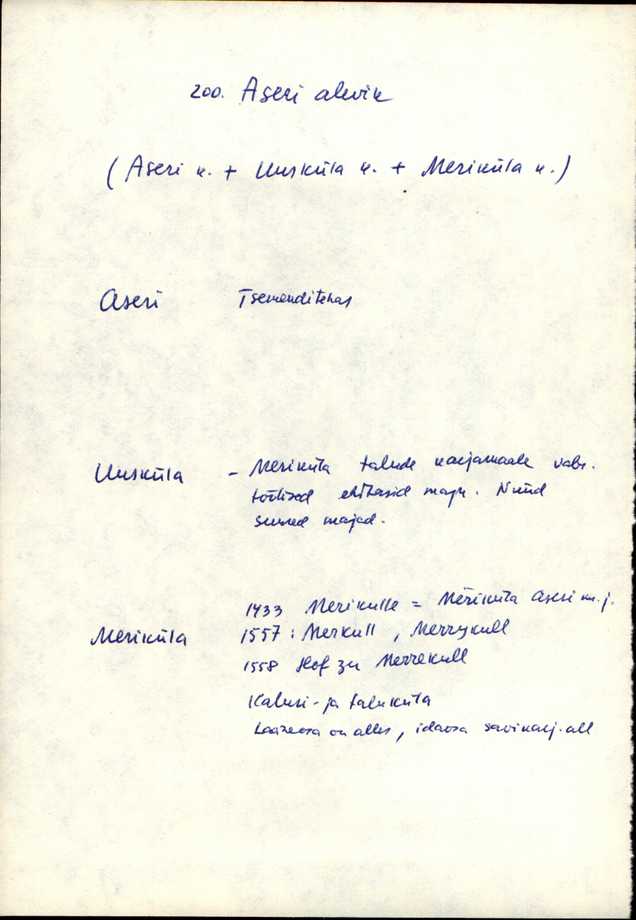 200. Aseri alevik
(Aseri k. + Uusküla k. + Meriküla k.)
Aseri Tsemenditehas
Uusküla - Meriküla talude karjamaale vabr.
töölised ehitasid maju. Nüüd
suured majad.
1433 Merikulle = Mërikula Aseri m.j.
Meriküla 1557: Merkull, Merrykull
1558 Hof zu Merrekull
Kaluri- ja taluküla
Lääneosa on alles, idaosa savikarj. all